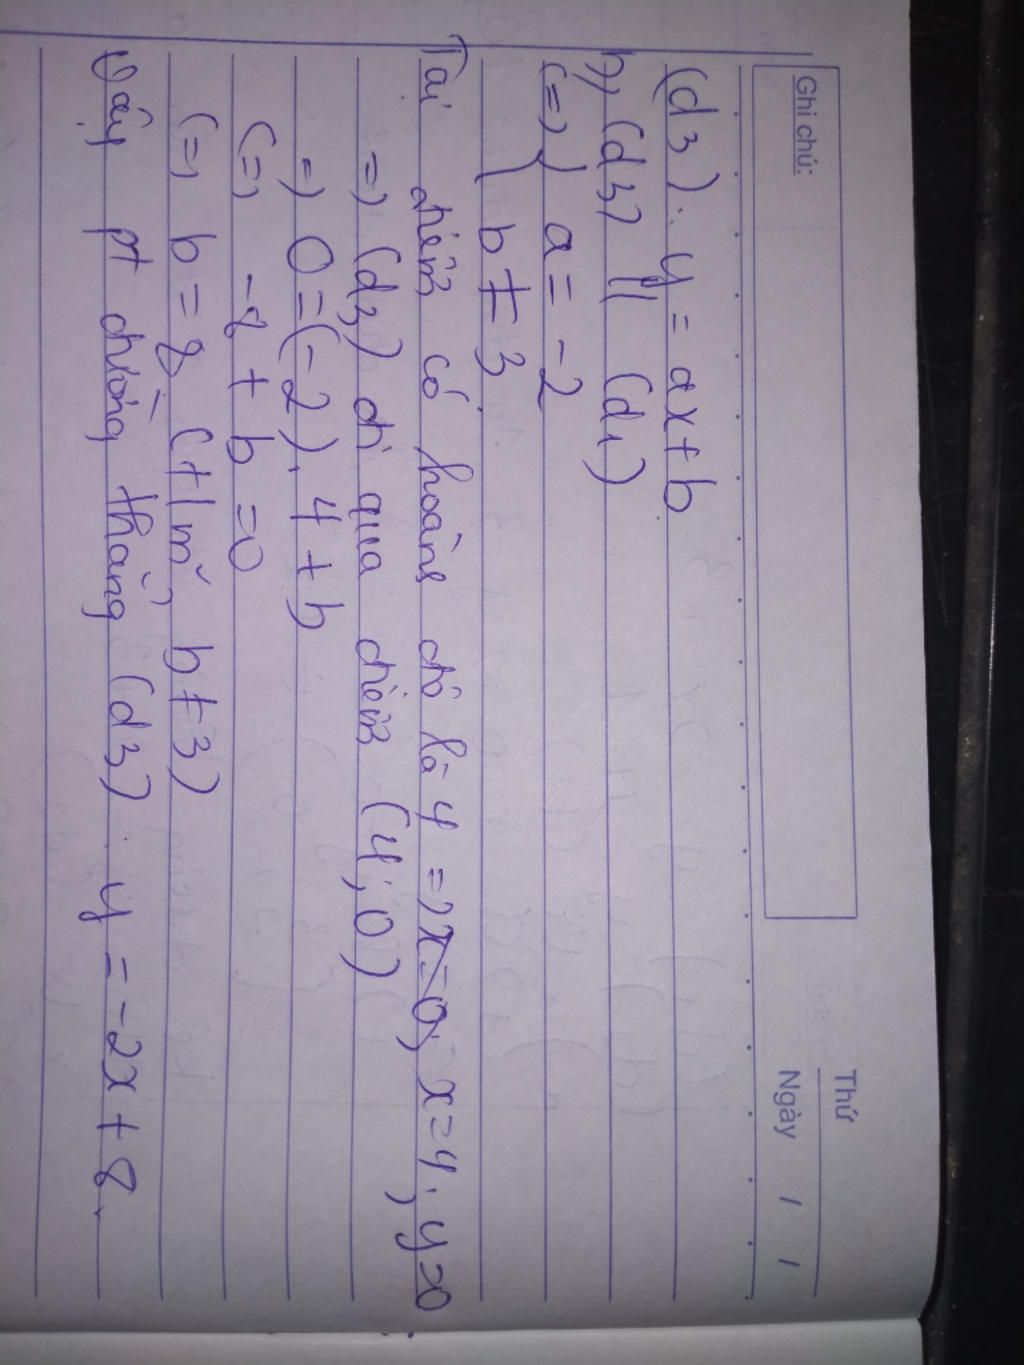 Thứ
Ghi chú:
Ngày / /
(d3): y = ax + b
b, (d3) // (d1)
(=) { a = -2
b ≠ 3
Tại điểm có hoành độ là 4 => x = 4; y = 0
=> (d3) đi qua điểm (4; 0)
=> 0 = (-2). 4 + b
(=) -8 + b = 0
(=) b = 8 (t/m b ≠ 3)
Vậy pt đường thẳng (d3): y = -2x + 8.